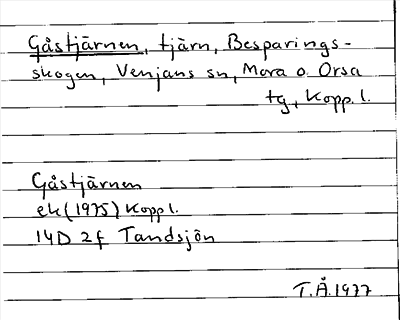 Gåstjärnen, tjärn, Besparings-
skogen, Venjans sn, Mora o. Orsa
tg, Kopp. l.
Gåstjärnen
ek (1975) Kopp l.
14D 2f Tandsjön
T.Å. 1977